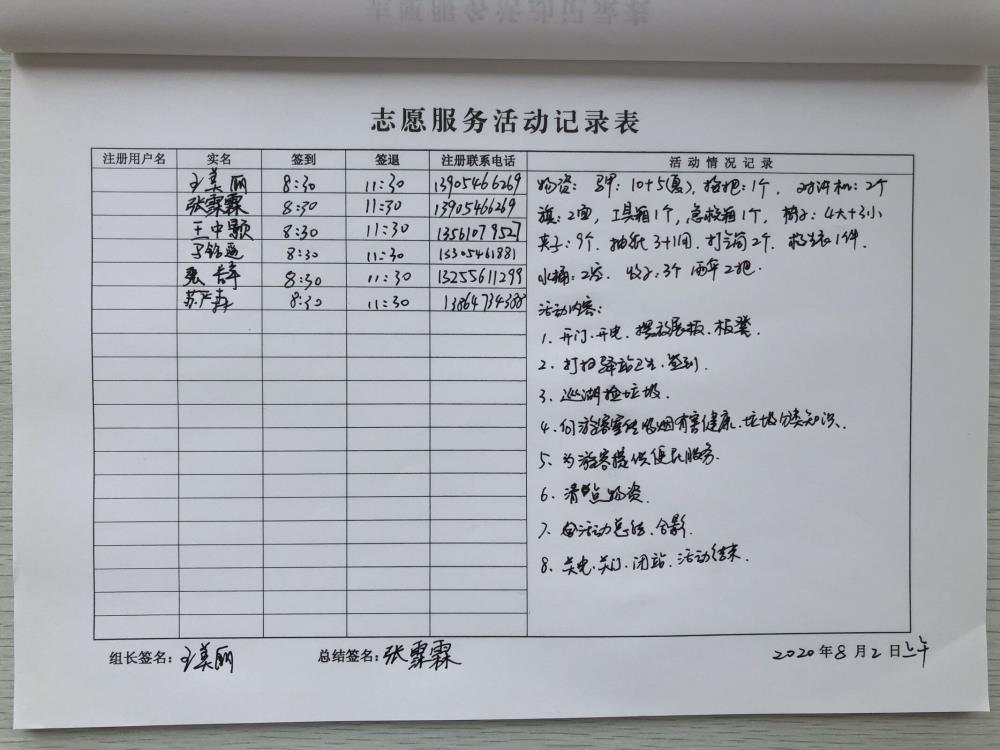 志愿服务活动记录表
注册用户名 实名 签到 签退 注册联系电话 活动情况记录
王美丽 8:30 11:30 13905466269
张霖霖 8:30 11:30 13905466269
王中颢 8:30 11:30 13561079527
8:30 11:30 15305461881
8:30 11:30 13255611299
苏严森 8:30 11:30 13864734388
物资：马甲：10+5(旧)，拖把：1个，对讲机：2个
旗：2面，工具箱1个，急救箱1个，椅子：4大+3小
夹子：9个，抽纸3+1闭，打气筒2个．救生衣1件．
水桶：2 3个 雨伞2把．
活动内容：
1．开门、开电，摆放展板、板凳．
2．打扫驿站卫生、签到．
3．巡湖捡垃圾．
4．向游客宣传吸烟有害健康、垃圾分类知识．
5．为游客提供便民服务．
6．清点物资．
7．活动总结，合影．
8．关电、关门、闭站，活动结束．
组长签名：王美丽 总结签名：张霖霖 2020年8月2日上午